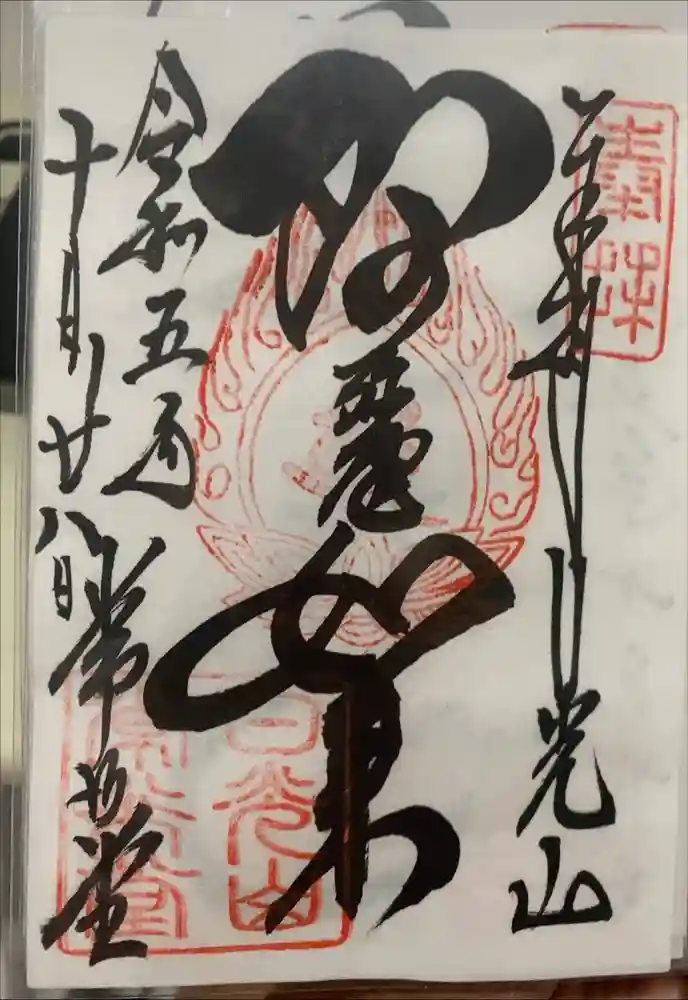 奉拝
奉拝 日光山
阿弥陀如来
令和五年
十月廿八日 常行堂
日光山
常行堂